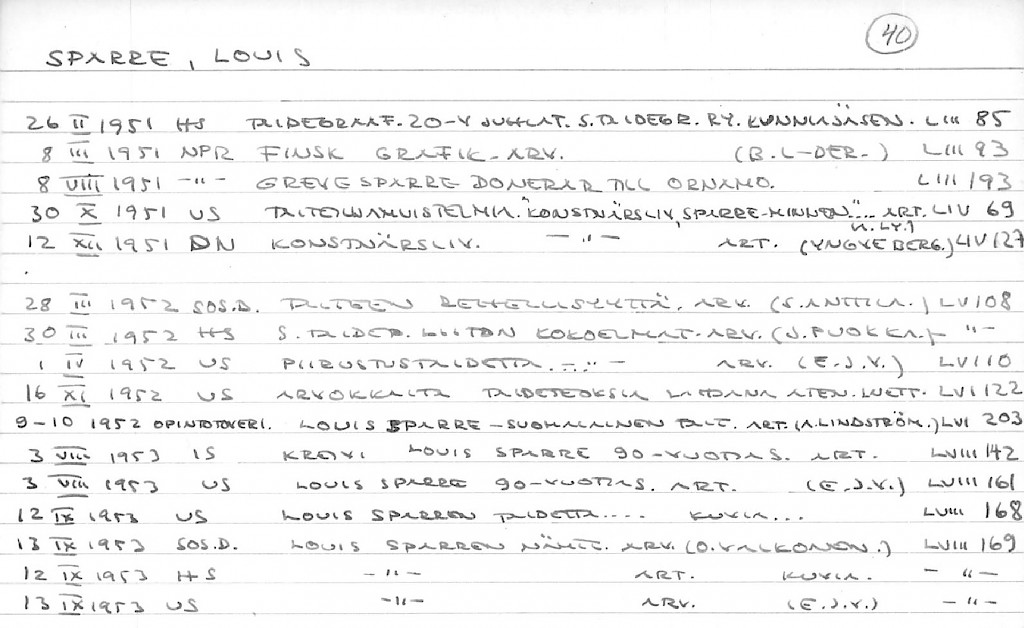 40
SPARRE, LOUIS
26 II 1951 HS TAIDEGRAAF. 20-V JUHLAT. S. TAIDEGR. RY. KUNNIAJÄSEN. LIII 85
8 III 1951 NPR FINSK GRAFIK - ARV. (B. L-DER.) LIII 93
8 VIII 1951 -"- GREVE SPARRE DONERAR TILL ORNAMO. LIII 193
30 X 1951 US TAITEILIJAMUISTELMIA. "KONSTNÄRSLIV, SPARRE-MINNEN".... ART. LIV 69
(A. LY.)
12 XII 1951 DN KONSTNÄRSLIV. -"- ART. (YNGVE BERG.) LIV 127
28 III 1952 SOS.D. TAITEEN REHELLISYYTTÄ. ARV. (S. ANTTILA.) LV 108
30 III 1952 HS S. TAIDEP. LIITON KOKOELMAT - ARV. (J. PUOKKA.) -"-
1 IV 1952 US PIIRUSTUSTAIDETTA. -..."- ARV. (E.J.V.) LV 110
16 XI 1952 US ARVOKKAITA TAIDETEOKSIA LAHJANA ATEN. LUETT. LVI 122
9-10 1952 OPINTOTOVERI. LOUIS SPARRE - SUOMALAINEN TAIT. ART. (A. LINDSTRÖM.) LVI 203
3 VIII 1953 IS KREIVI LOUIS SPARRE 90-VUOTIAS. ART. LVIII 142
3 VIII 1953 US LOUIS SPARRE 90-VUOTIAS. ART. (E.J.V.) LVIII 161
12 IX 1953 US LOUIS SPARREN TAIDETTA.... KUVIA... LVIII 168
13 IX 1953 SOS.D. LOUIS SPARREN NÄYTT. ARV. (O. VALKONEN.) LVIII 169
12 IX 1953 HS -"- ART. KUVIA. -"-
13 IX 1953 US -"- ARV. (E.J.V.) -"-